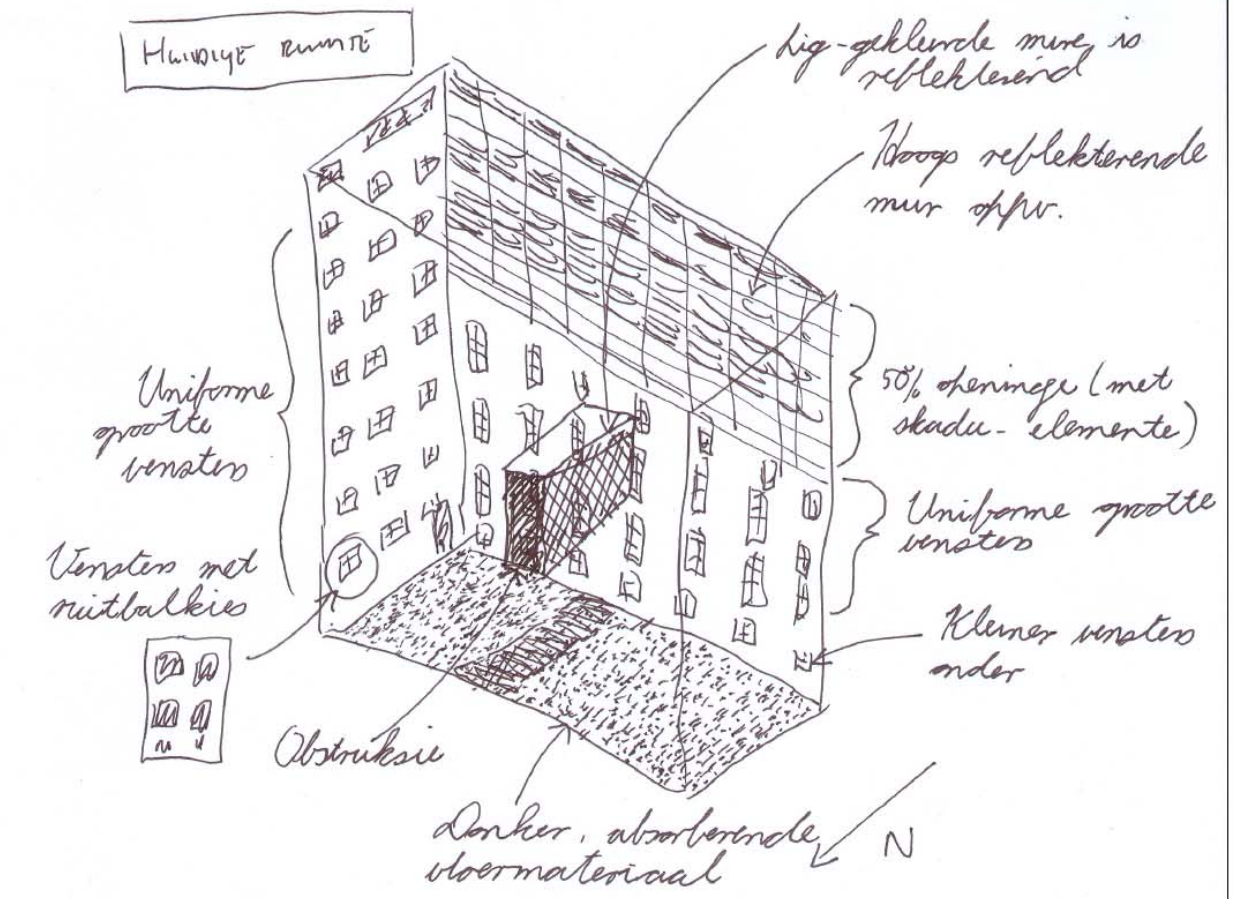 HUIDIGE RUIMTE
Lig-gekleurde mure is
reflekterend
Hoogs reflekterende
mur oppv.
50% openinge (met
skadu-elemente)
Uniforme grootte
vensters
Uniforme grootte
vensters
Vensters met
ruitbalkies
Kleiner vensters
onder
Obstruksie
Donker, absorberende
vloermateriaal
N